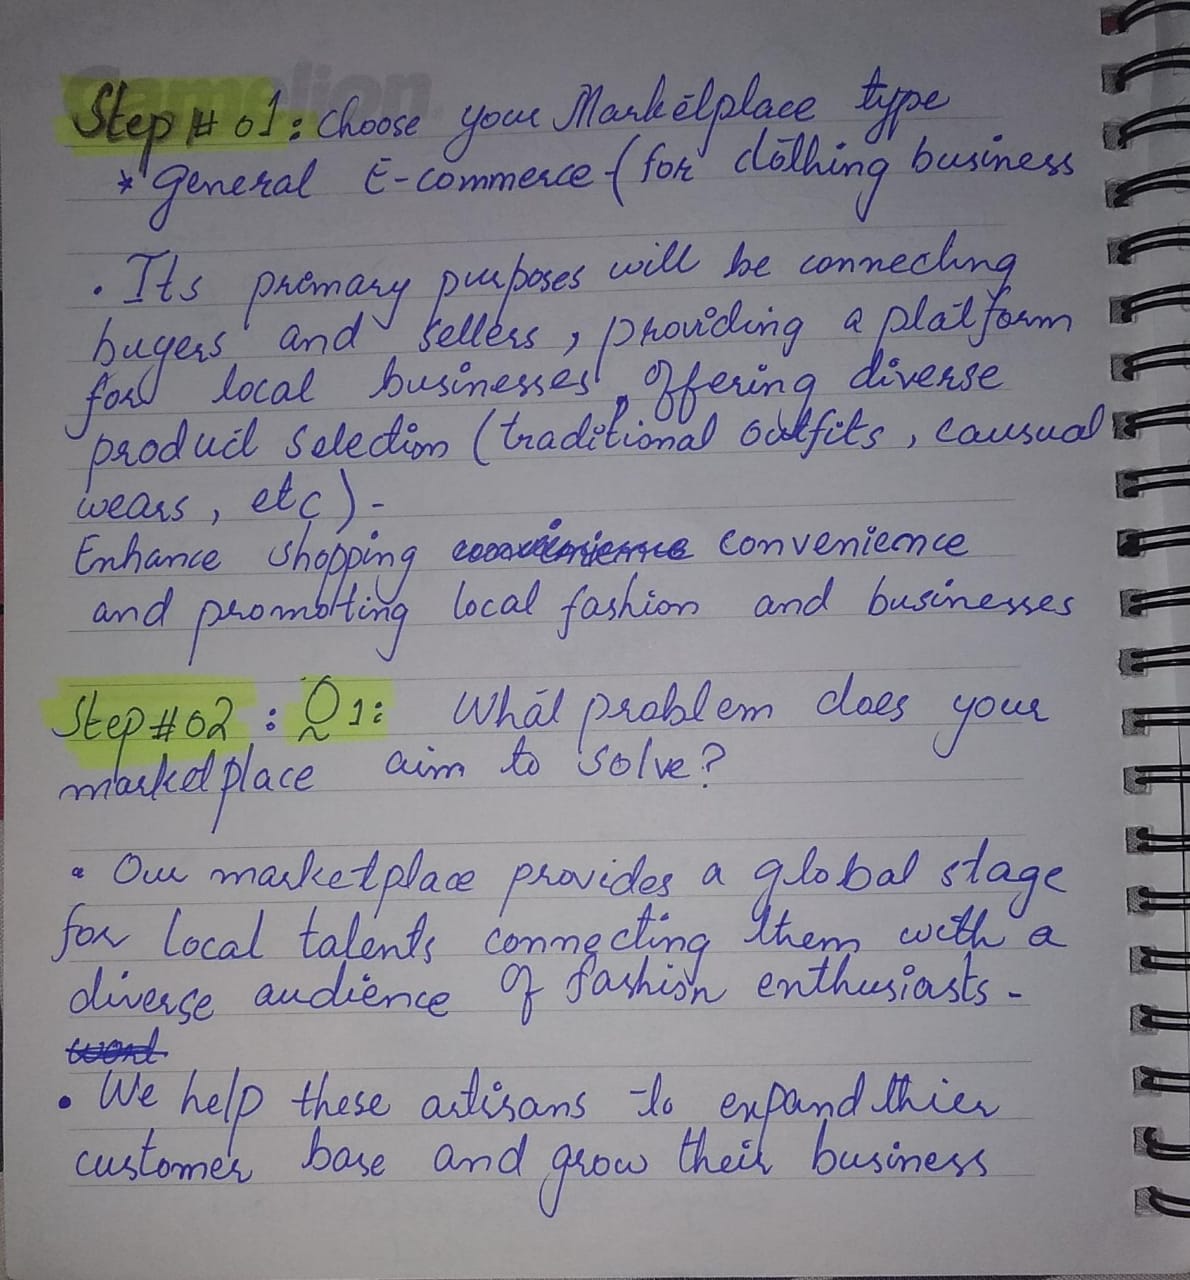 Camelion
Step # 01: Choose your Marketplace type
* General E-commerce (for clothing business
. Its primary purposes will be connecting
buyers and sellers, providing a platform
for local businesses, offering diverse
product selection (traditional outfits, causual
wears, etc).
Enhance shopping convenience
and promotting local fashion and businesses
Step # 02: Q1: What problem does your
marketplace aim to solve?
• Our marketplace provides a global stage
for local talents connecting them with a
diverse audience of fashion enthusiasts.
• We help these artisans to expand thier
customer base and grow their business